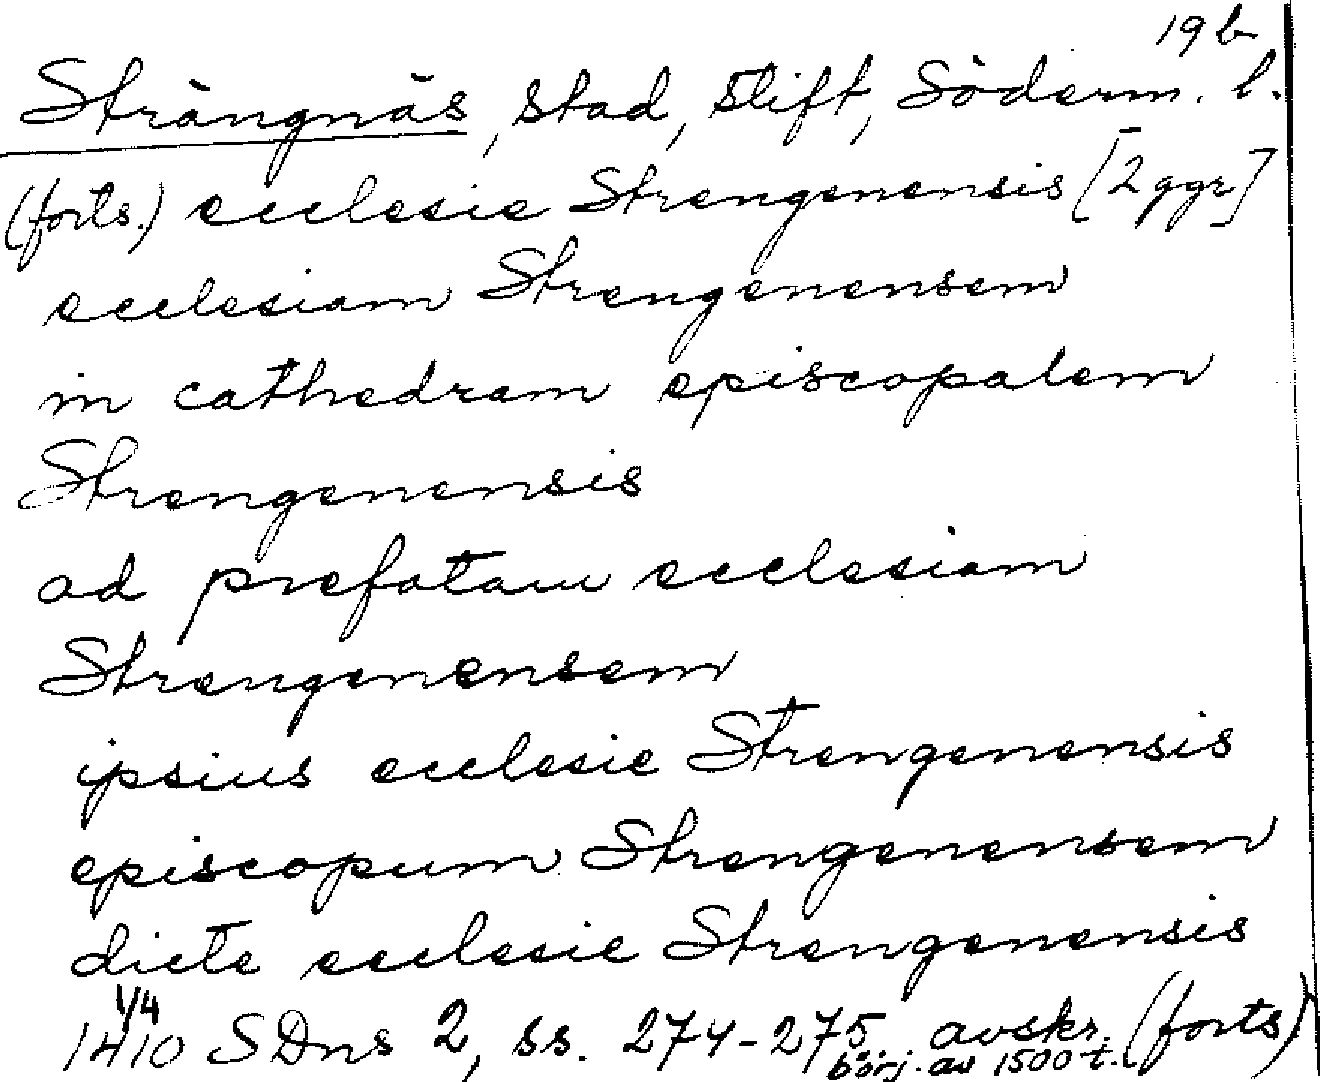 19 b
Strängnäs, stad, stift, Söderm. l.
(forts.) ecclesie Strengenensis [2 ggr]
ecclesiam Strengenensem
in cathedram episcopalem
Strengenensis
ad prefatam ecclesiam
Strengenensem
ipsius ecclesie Strengenensis
episcopum Strengenensem
dicte ecclesie Strengenensis
1/4
1410 SDns 2, ss. 274-275 avskr. (forts)
börj. av 1500 t.